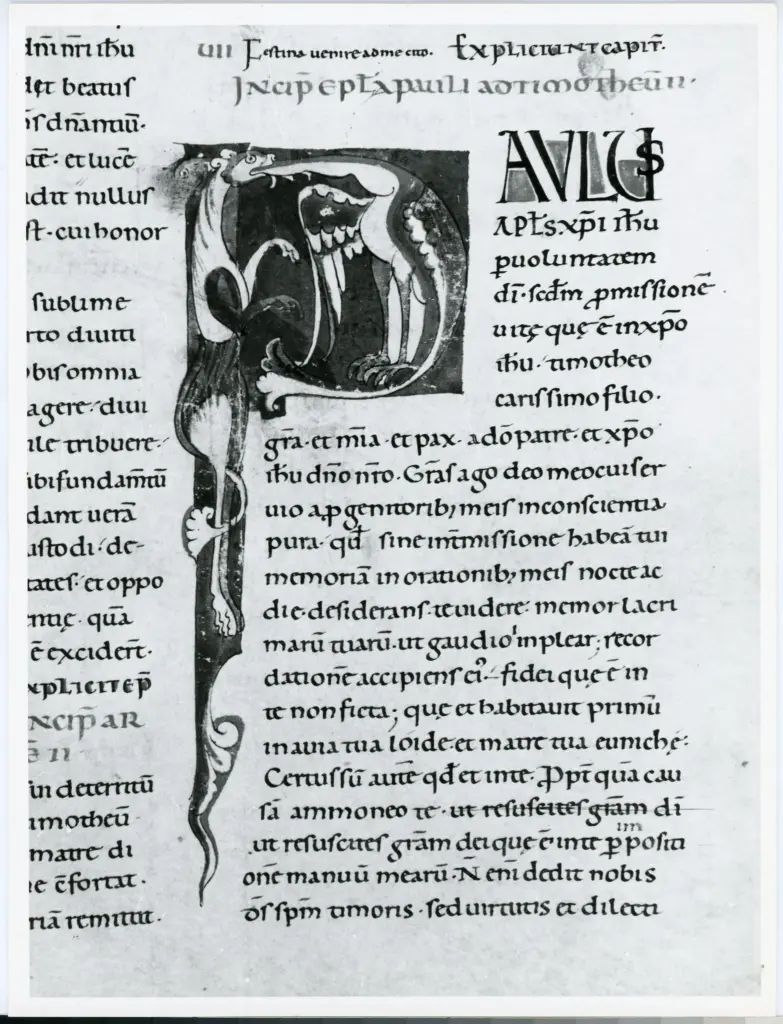 dñi nr̃i ih̃u
beatuſ
ſ dñantiũ·
et lucẽ
nulluſ
ſt· cui honor
ſublime
diuiti
biſ omnia
agere· diui
ile tribuere·
ibi fundam̃tũ
dant uerã
uſtodi· de-
tateſ· et oppo
entię· quã
ẽ excider̃t·
xpliciт ep̃
ncip̃ ar
ii
un deterritũ
imotheũ
matre di
e c̃fortat·
riã remittit·
uiii Feſtina uenire ad me cito. Expliciunt capit̃.
Incip̃ epl̃a pauli ad timotheum ii·
PAULUS
apl̃s xp̃i ih̃u
p uoluntatem
dī· ſcd̃m ꝓmiſſionẽ
uitę quę ẽ in xp̃o
ih̃u· timotheo
cariſſimo filio·
gr̃a· et mĩa· et pax· a dõ patre· et xp̃o
ih̃u dño nr̃o· Gr̃aſ ago deo meo cui ſer
uio a ꝓgenitorib; meiſ in conſcientia
pura· qd̃ ſine int̃miſſione habeã tui
memoriã in orationib; meiſ nocte ac
die· deſideranſ te uidere· memor lacri
marũ tuarũ· ut gaudio inplear; recor
dationẽ accipienſ ei᾿· fidei que ẽ in
te non ficta; que et habitauit primũ
in auia tua loide· et matre tua eunichę·
Certuſ ſũ autẽ qd̃ et in te· Ꝓpt̃ quã cau
ſã ammoneo te· ut reſuſciteſ gr̃am dī
ut reſuſciteſ gr̃am dei quę ẽ in te ꝑ im poſiti
onẽ manuũ mearũ· Ñ enĩ dedit nobiſ
d̃s ſpm̃ timoriſ· ſed uirtutiſ et dilecti